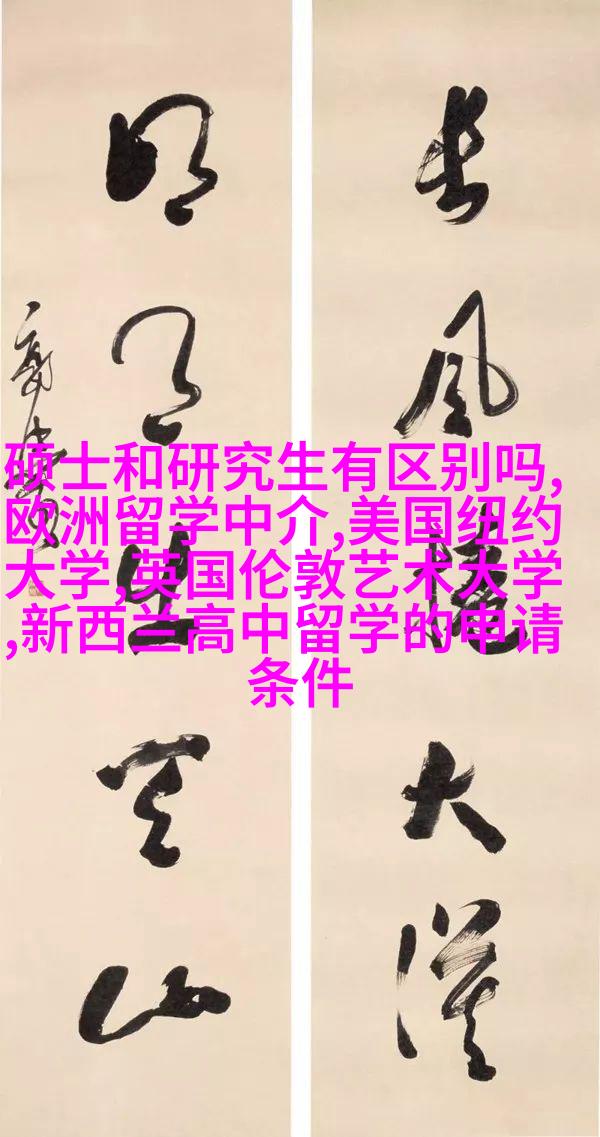 硕士和研究生有区别吗,
欧洲留学中介,美国纽约
大学,英国伦敦艺术大学
,新西兰高中留学的申请
条件
长风大漠
明月天山